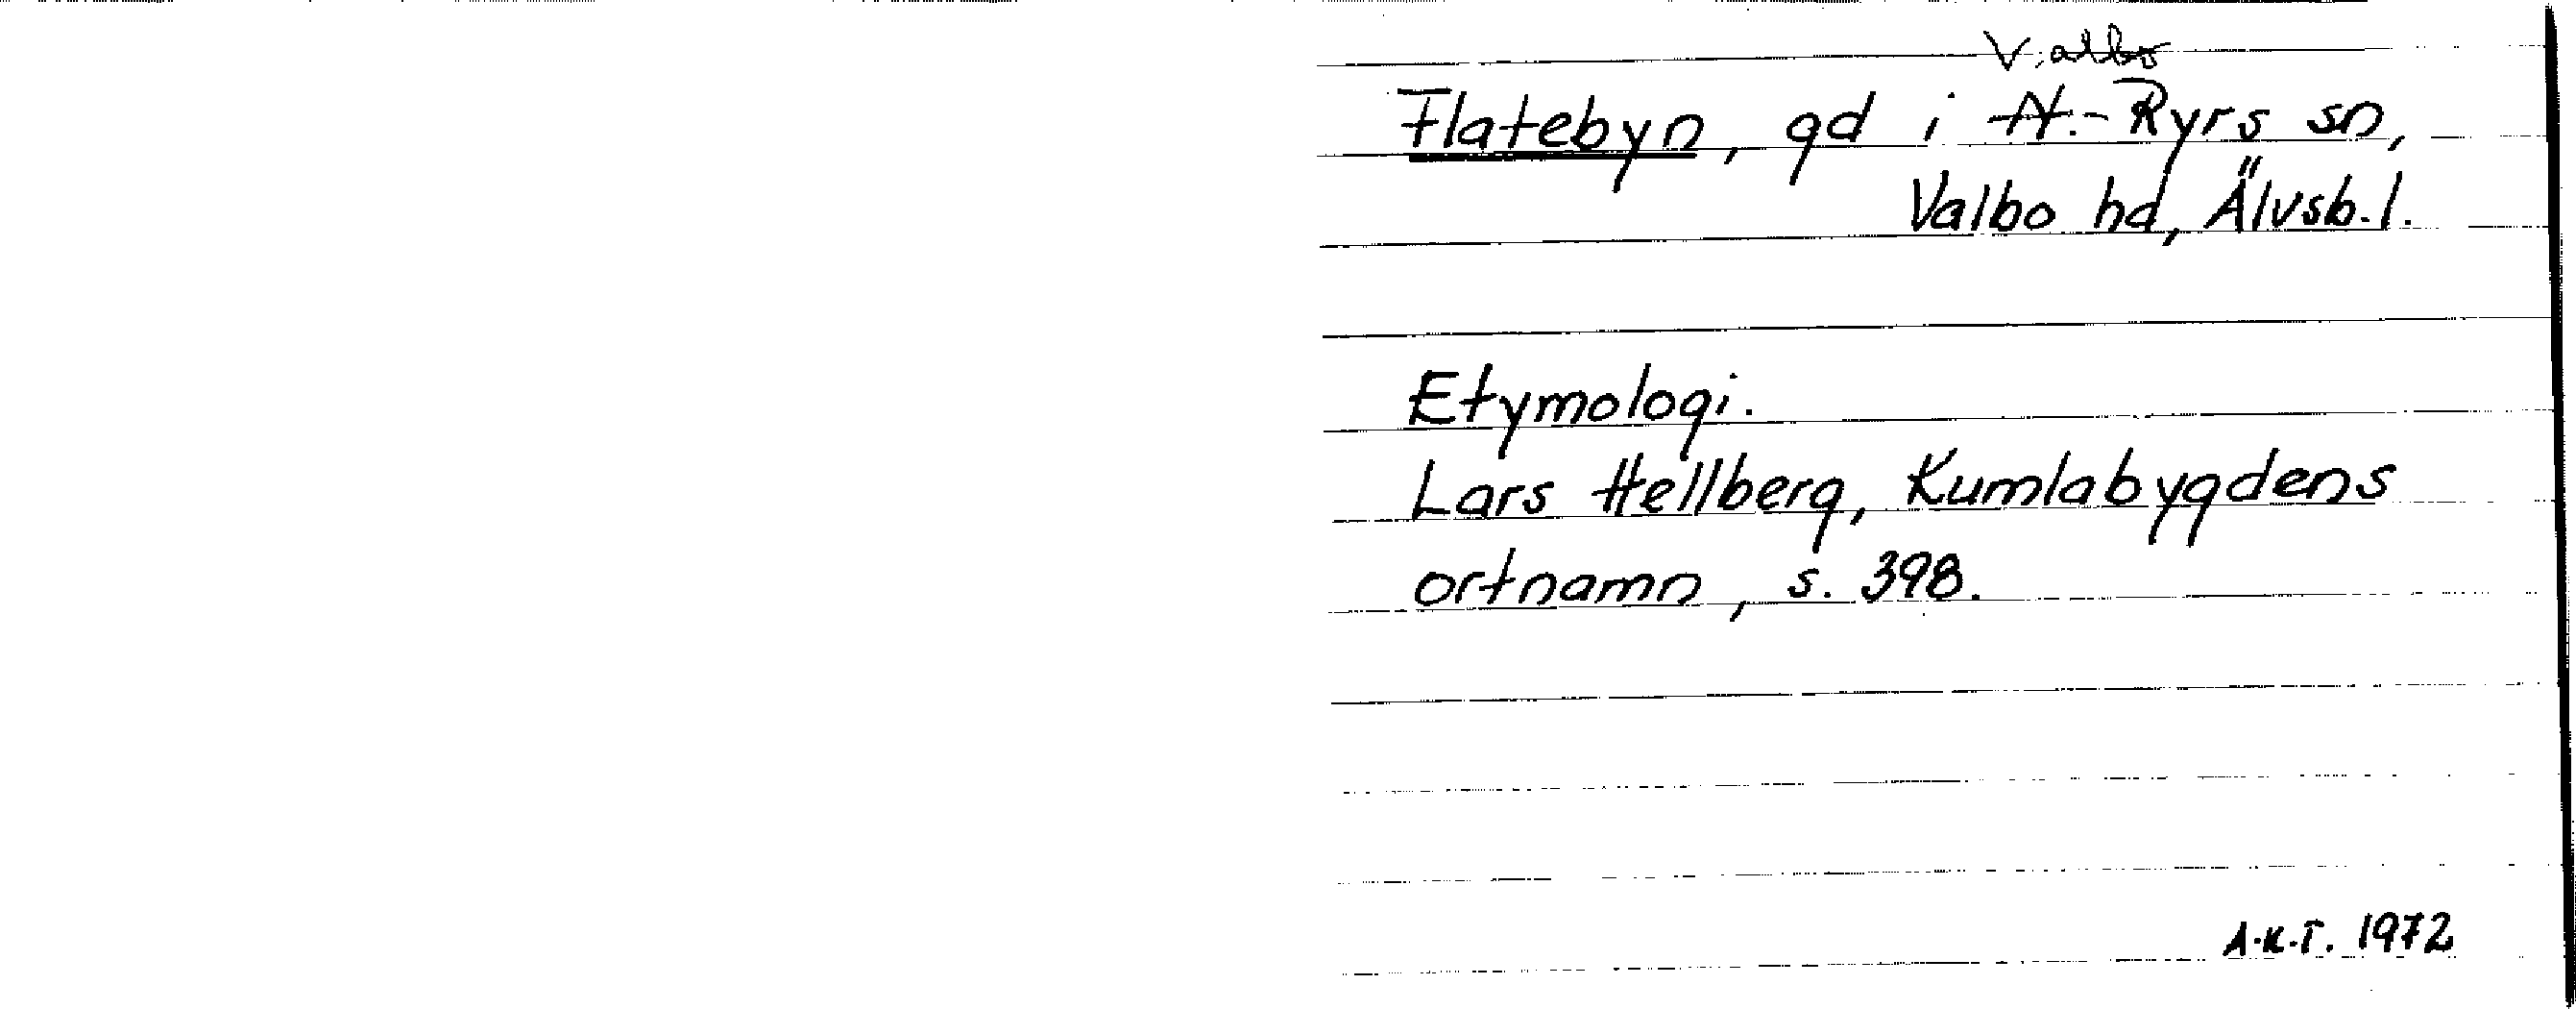 Valbo
Flatebyn, gd i N.-Ryrs sn,
Valbo hd, Älvsb.l.
Etymologi.
Lars Hellberg, Kumlabygdens
ortnamn, s. 398.
A.K.T. 1972